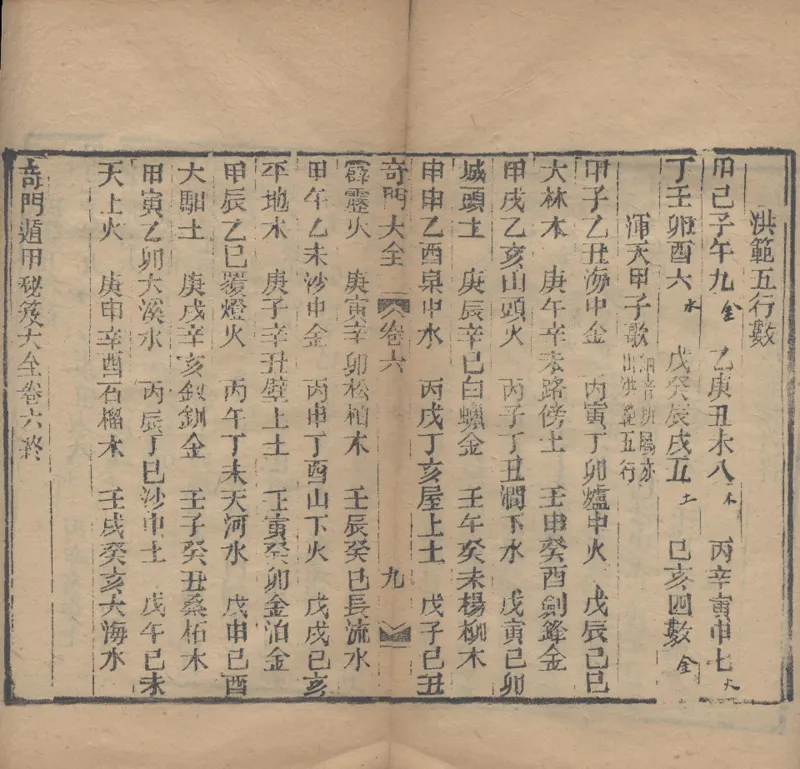 洪範五行數
甲己子午九金 乙庚丑未八木 丙辛寅申七火
丁壬卯酉六水 戊癸辰戌五土 巳亥四數金
渾天甲子歌 納音所屬亦出洪範五行
甲子乙丑海中金 丙寅丁卯爐中火 戊辰己巳
大林木 庚午辛未路傍土 壬申癸酉劍鋒金
甲戌乙亥山頭火 丙子丁丑澗下水 戊寅己卯
城頭土 庚辰辛巳白蠟金 壬午癸未楊柳木
甲申乙酉泉中水 丙戌丁亥屋上土 戊子己丑
奇門大全 卷六 九
霹靂火 庚寅辛卯松柏木 壬辰癸巳長流水
甲午乙未沙中金 丙申丁酉山下火 戊戌己亥
平地木 庚子辛丑壁上土 壬寅癸卯金泊金
甲辰乙巳覆燈火 丙午丁未天河水 戊申己酉
大馹土 庚戌辛亥釵釧金 壬子癸丑桑柘木
甲寅乙卯大溪水 丙辰丁巳沙中土 戊午己未
天上火 庚申辛酉石榴木 壬戌癸亥大海水
奇門遁甲秘笈大全卷六終